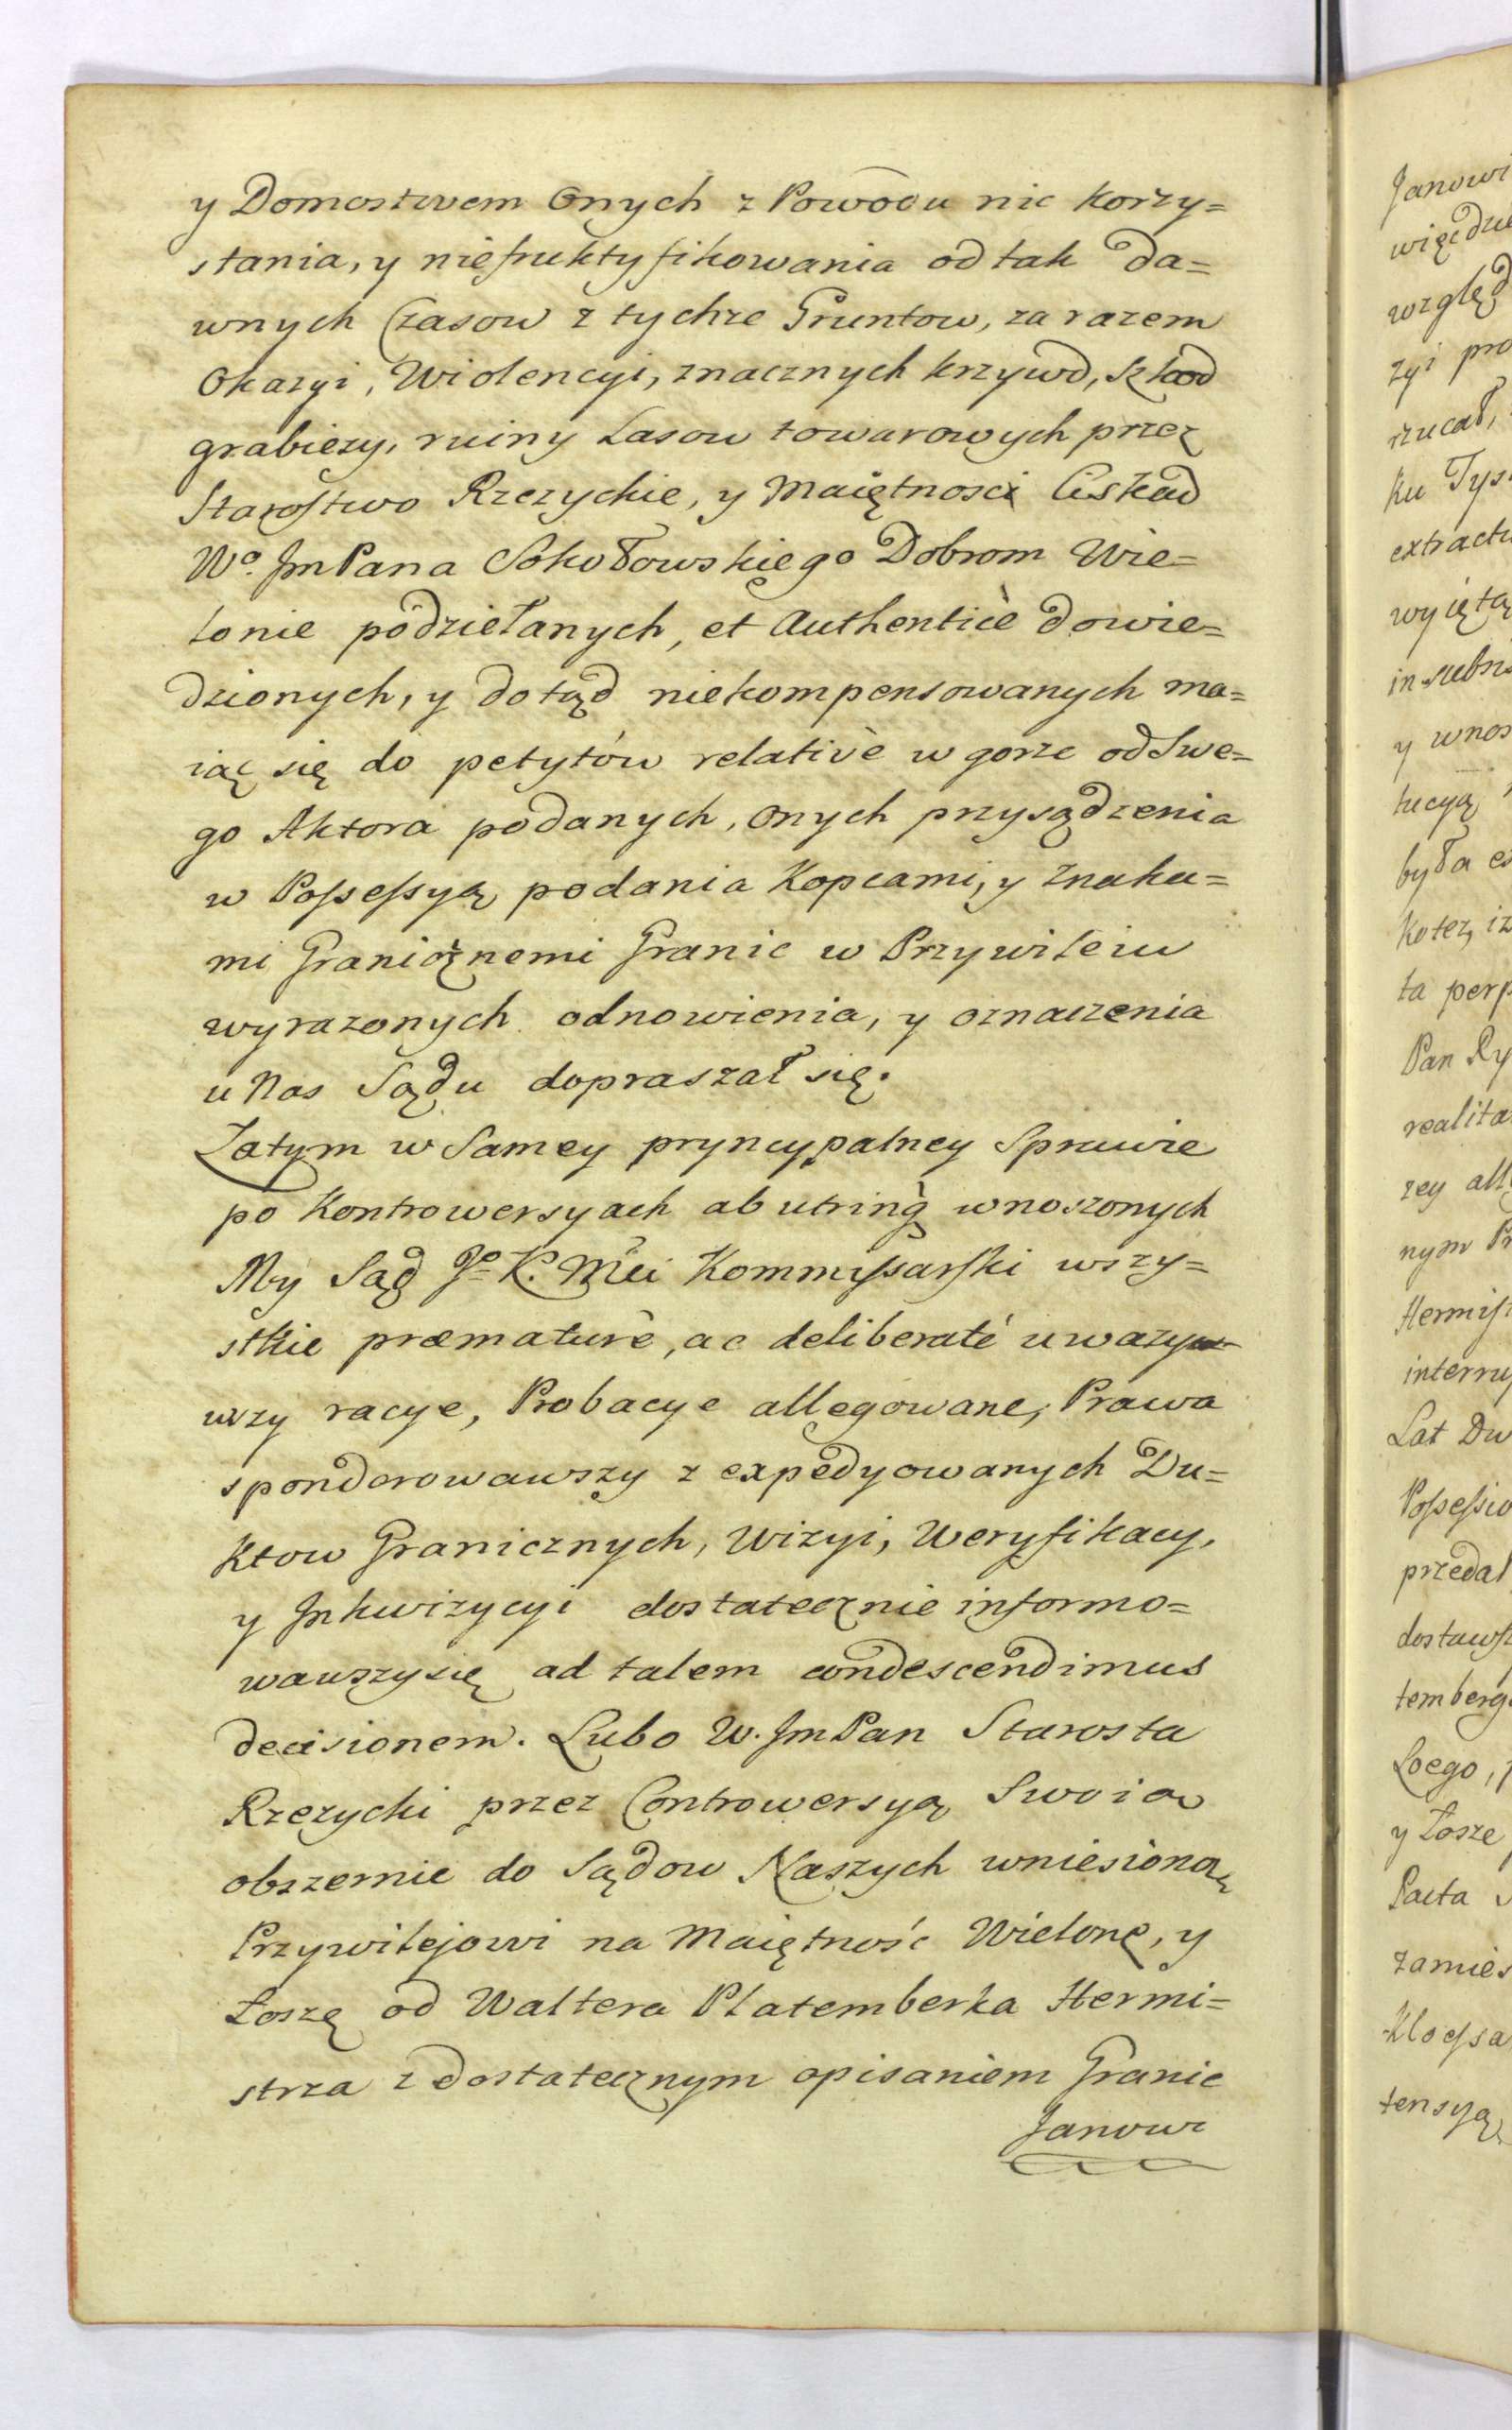 y Domostwem Onych z Powodu nie korzy=
stania, y niefruktyfikowania od tak da=
wnych Czasow z tychże Gruntow, za razem
Okazyi, Wiolencyi, znacznych krzywd, szkod
grabieży, ruiny Lasow towarowych przez
Starostwo Rzeżyckie, y Maiętnosci Ciskad
Wo. JmPana Sokołowskiego Dobrom Wie=
lonie podziełanych, et Authenticè dowie=
dzionych, y dotąd niekompensowanych ma=
iąc się do petytów relativè w gorze od Swe=
go Aktora podanych, Onych przysądzenia
w Possessyą podania Kopcami, y Znaka=
mi Granicznemi Granic w Przywileiu
wyrazonych odnowienia, y oznaczenia
u Nas Sądu dopraszał się.
Zatym w Samey pryncypalney Sprawie
po Kontrowersyach ab utrinq̀ wnoszonych
My Sąd Jo K. Mci Kommissarski wszy=
stkie præmaturè, ac deliberaté uważy
wszy racye, Probacye allegowane, Prawa
sponderowawszy z expedyowanych Du=
ktow Granicznych, Wizyi, Weryfikacy,
y Inkwizycyi dostatecznie informo=
wawszy się ad talem condescendimus
decisionem. Lubo W. JmPan Starosta
Rzeżycki przez Controwersyą Swoią
obszernie do Sądow Naszych wniesioną
Przywilejowi na Maiętność Wielonę, y
Łoszę od Waltera Platemberka Hermi=
strza z dostatecznym opisaniem Granic
Janowi

Janowi
więc
względ
zyi pro
rzucał,
ku
wyiętą
y wnos
była
ta perp
Pan Ry
realita
zey
nym
Lat
przedał
Loego,
y Łosze
Pacta
tensyą